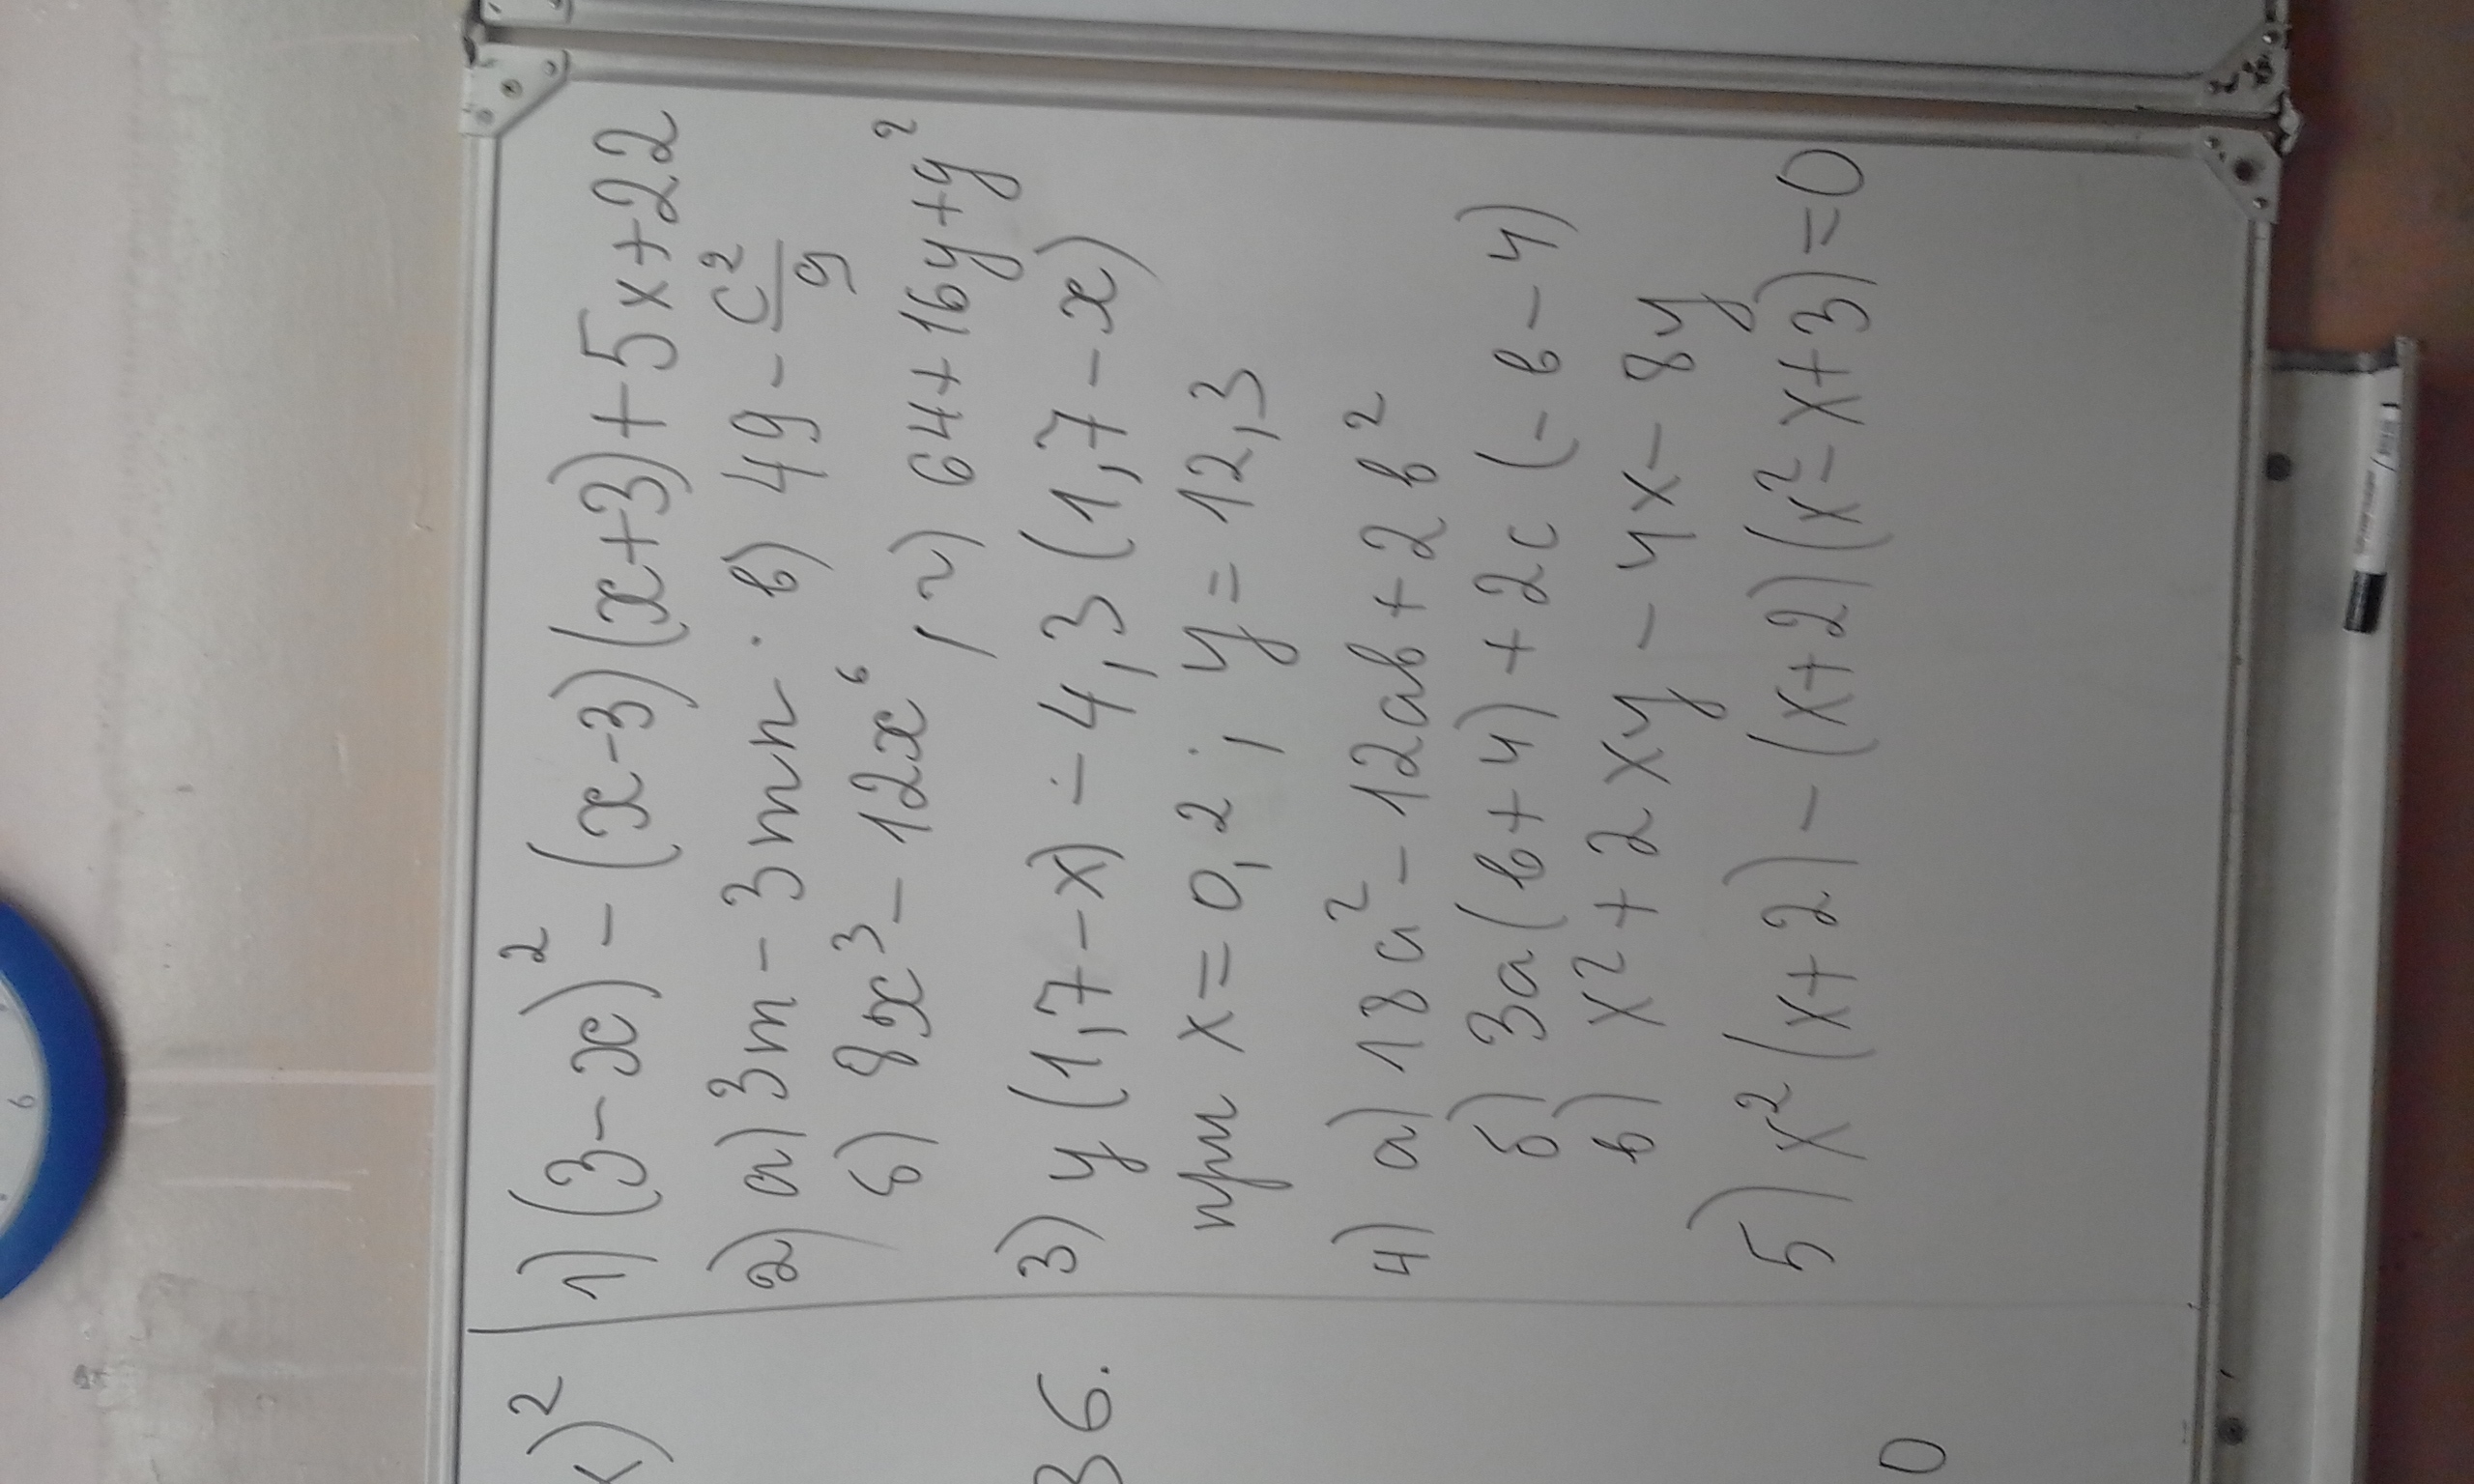 1) (3-x)² - (x-3)(x+3) + 5x + 22
2) а) 3m - 3mn. в) 49 - c²/9
б) 8x³ - 12x⁶, г) 64 + 16y + y²
3) y (1,7 - x) - 4,3 (1,7 - x)
при x = 0,2; y = 12,3
4) а) 18a² - 12ab + 2b²
б) 3a (b + 4) + 2c (- b - 4)
в) x² + 2xy - 4x - 8y
5) x² (x+2) - (x+2)(x² - x + 3) = 0
x)²
36.
0
6